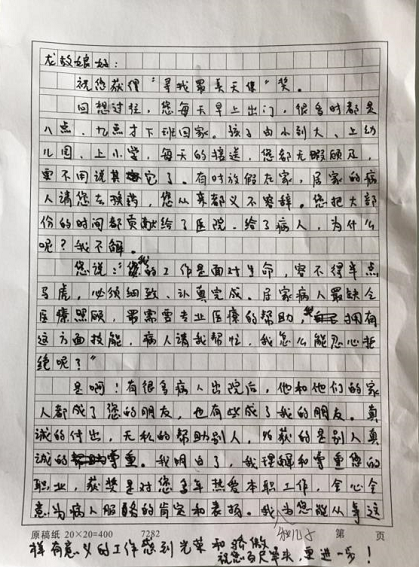 龙敏娘好：
祝您获得"寻找最美天使"奖。
回想过往，您每天早上出门，很多时都是
八点、九点才下班回家。孩子由小到大、上幼
儿园、上小学，每天的接送，您都无暇顾及，
更不用说其它了。有时放假在家，居家的病
人请您去换药，您从来都义不容辞。您把大部
份的时间都贡献给了医院、给了病人，为什么
呢？我不解。
您说："我的工作是面对生命，容不得半点
马虎，必须细致、认真完成。居家病人最缺全
医疗照顾，最需要专业医疗的帮助，我拥有
这方面技能，病人请我帮忙，我怎么能忍心拒
绝呢？"
是啊！有很多病人出院后，他和他们的家
人都成了您的朋友，也有些成了我的朋友。真
诚的付出，无私的帮助别人，收获的是别人真
诚的尊重。我明白了，我理解和尊重您的
职业，获奖是对您多年热爱本职工作，全心全
意为病人服务的肯定和表扬。我为您从事这
原稿纸 20×20=400 7282 第 页
样有意义的工作感到光荣和骄傲
祝您百尺竿头，更进一步！